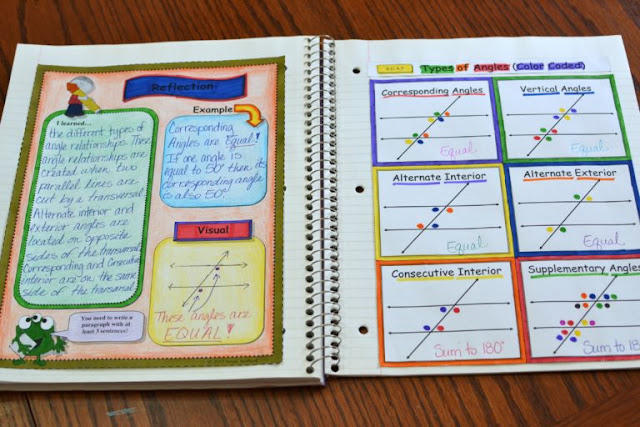 Reflection:
I learned...
the different types of
angle relationships. These
angle relationships are
created when two
parallel lines are
cut by a transversal.
Alternate interior and
exterior angles are
located on opposite
sides of the transversal.
Corresponding and Consecutive
interior are on the same
side of the transversal.
You need to write a
paragraph with at
least 5 sentences!
Example
Corresponding
Angles are Equal!
If one angle is
equal to 50° then its
corresponding angle
is also 50°.
Visual
These angles are
EQUAL!
Types of Angles (Color Coded)
Corresponding Angles
Equal
Vertical Angles
Equal
Alternate Interior
Equal
Alternate Exterior
Equal
Consecutive Interior
Sum to 180°
Supplementary Angles
Sum to 18